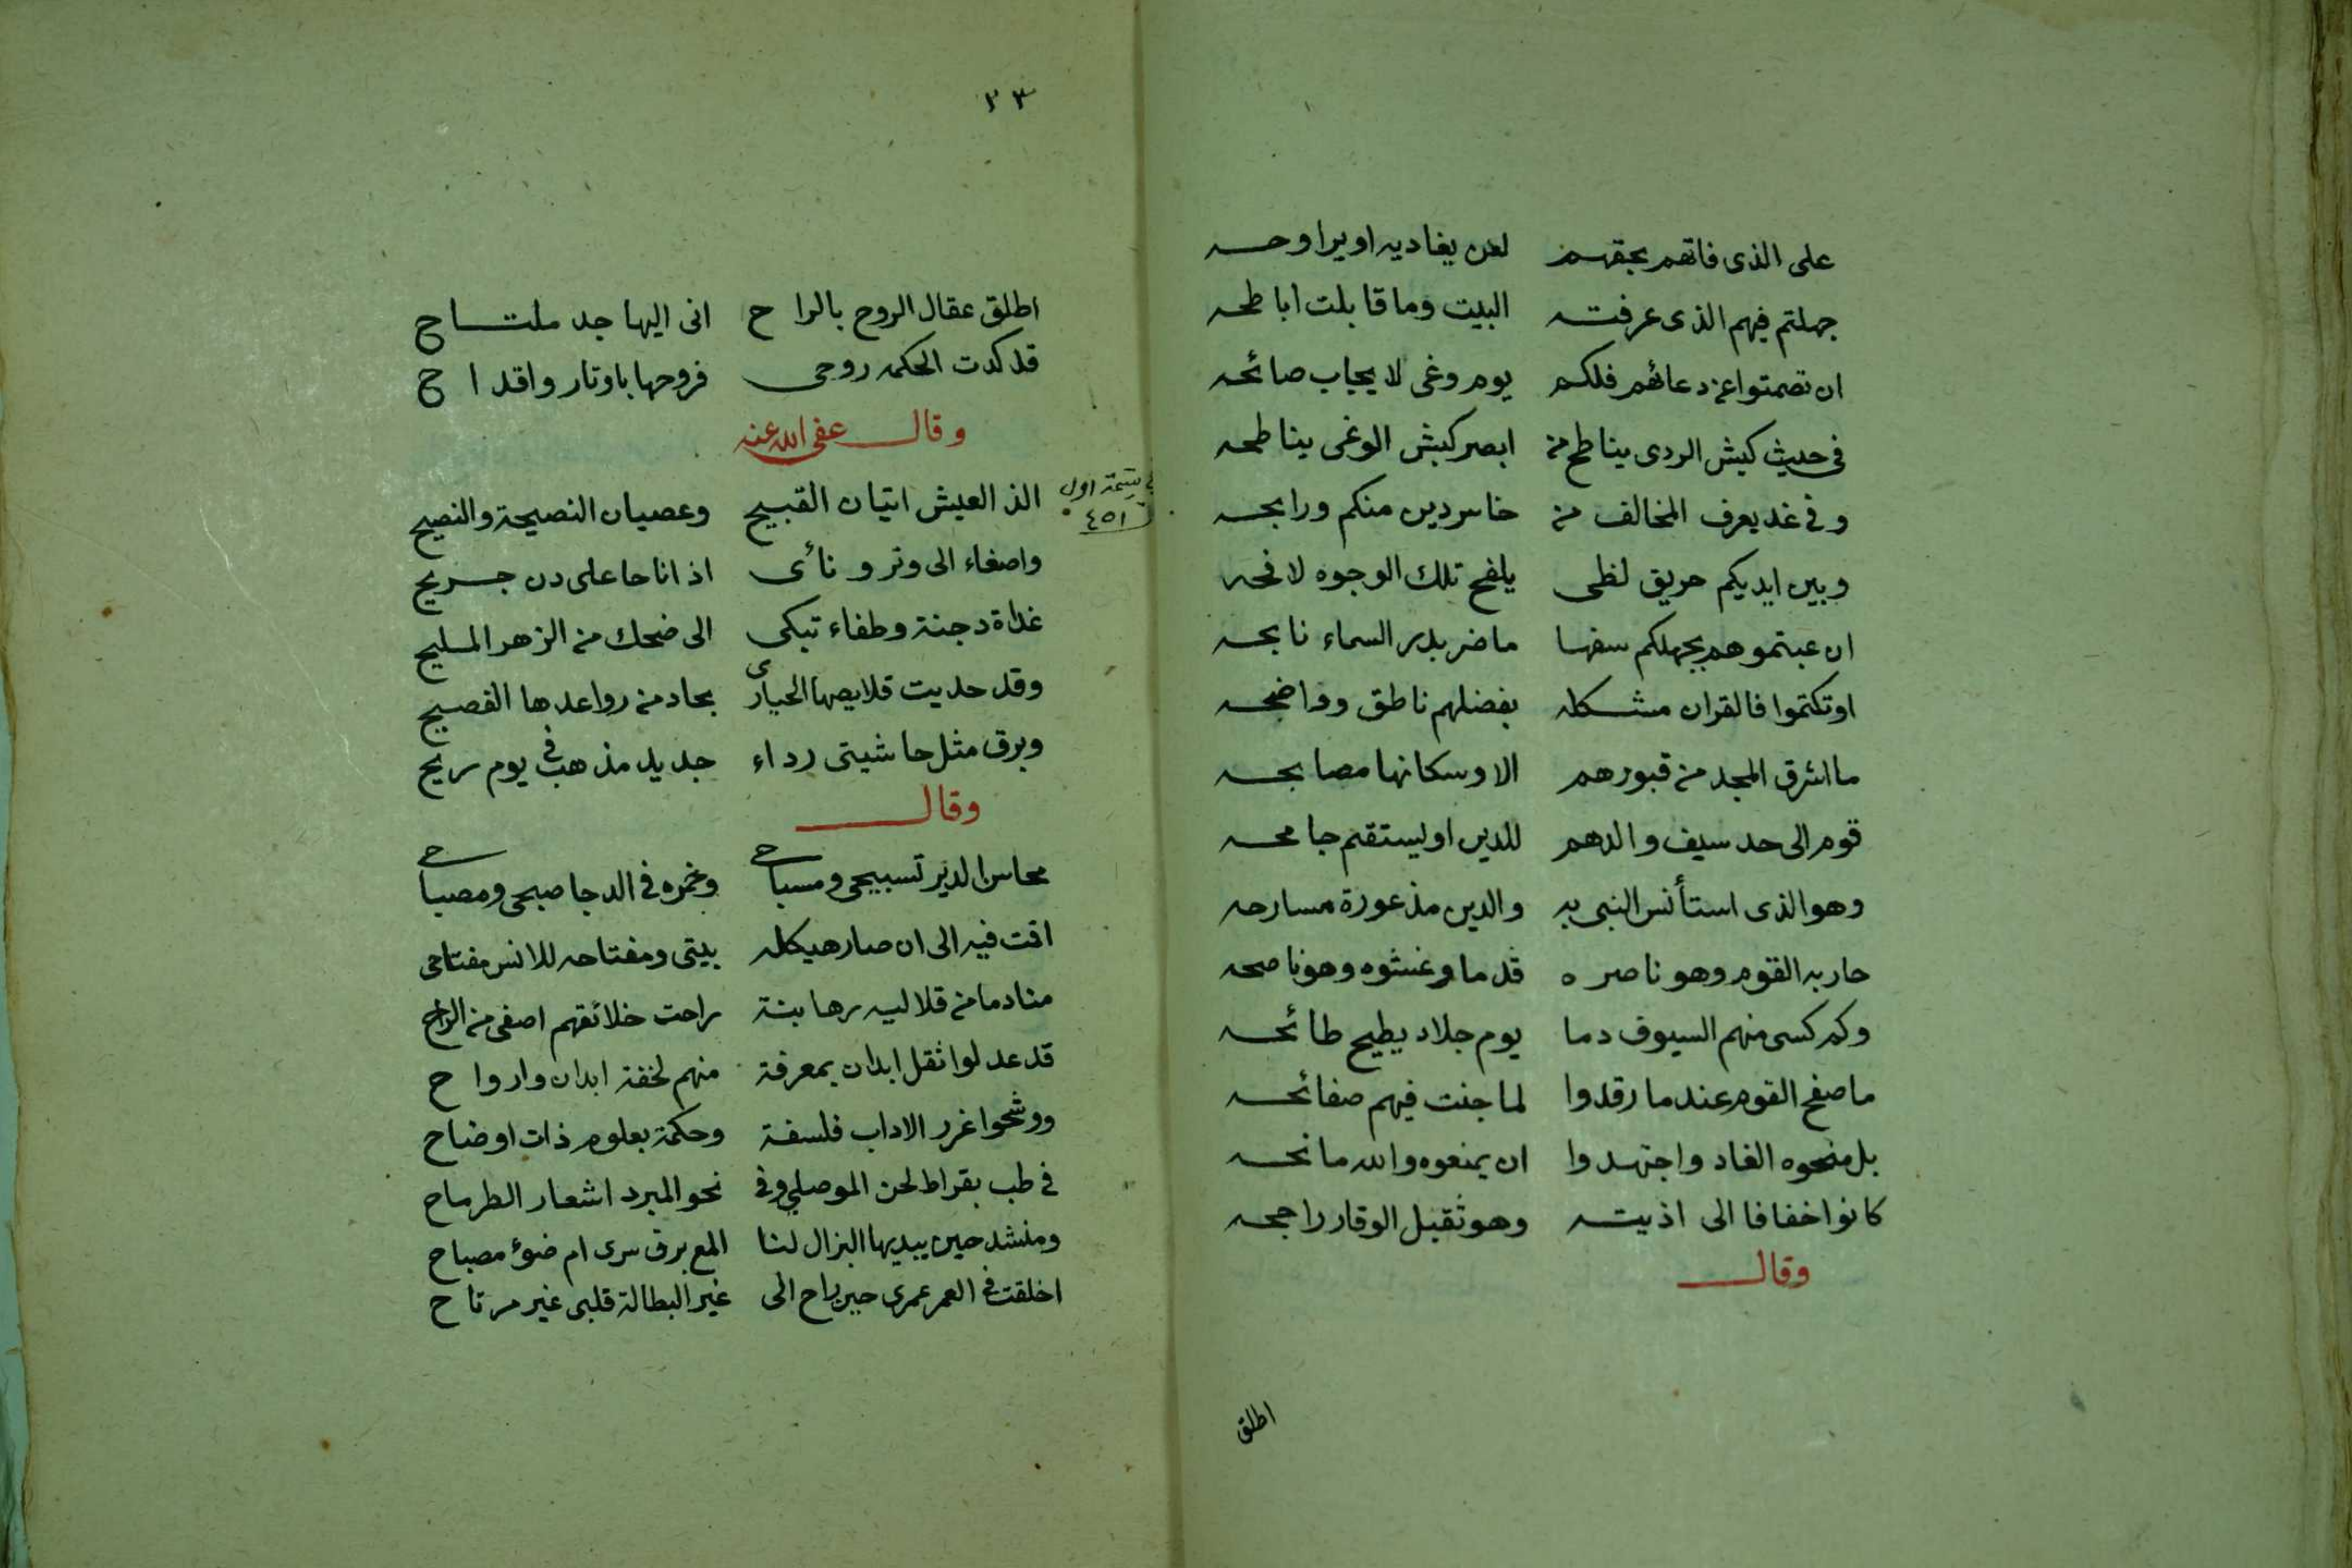 على الذى فاتهم بحقهم لعن يغاديه او يراوحه
جهلتم فيهم الذى عرفته البيت وما قابلت اباطحه
ان تصمتوا عن دعائهم فلكم يوم وغى لا يجاب صائحه
فى حيث كبش الردى يناطح من ابصر كبش الوغى يناطحه
وفى غد يعرف المخالف من خاسر دين منكم ورابحه
وبين ايديكم حريق لظى يلفح تلك الوجوه لافحه
ان عبتموهم بجهلكم سفها ما ضر بدر السماء نابحه
او تكتموا فالقران مشكله بفضلهم ناطق وواضحه
ما اشرق المجد من قبورهم الا وسكانها مصابحه
قوم الى حد سيف والدهم للدين او ليستقم جامحه
وهو الذى استأنس النبى به والدين مذعورة مسارحه
حاربه القوم وهو ناصره قدما وغشوه وهو ناصحه
وكم كسى منهم السيوف دما يوم جلاد يطيح طائحه
ما صفح القوم عندما رقدوا لما جنت فيهم صفائحه
بل منحوه العناد واجتهدوا ان يمنعوه والله مانحه
كانوا خفافا الى اذيته وهو ثقيل الوقار راجحه
وقال
اطلق
٣٣
اطلق عقال الروح بالراح انى اليها جد ملتاح
قد كدت الحكمه روحى فروحها باوتار واقداح
وقال عفى الله عنه
يتيمة اول
٤٥١
الذ العيش اتيان القبيح وعصيان النصيحة والنصيح
واصغاء الى وتر ونائى اذا ناحا على دن جريح
غداة دجنة وطفاء تبكى الى ضحك من الزهر المليح
وقد حديت قلايصها الحيارى بحاد من رواعدها الفصيح
وبرق مثل حاشيتى رداء جديد مذهب فى يوم ريح
وقال
محاسن الدير تسبيحى ومسباحى وخمره فى الدجا صبحى ومصباحى
اقمت فيه الى ان صار هيكله بيتى ومفتاحه للانس مفتاحى
منادما من قلاليه رهابنة راحت خلائقهم اصفى من الراح
قد عدلوا ثقل ابدان بمعرفة منهم لخفة ابدان وارواح
ووشحوا غرر الاداب فلسفة وحكمة بعلوم ذات اوضاح
فى طب بقراط لحن الموصلي وفى نحو المبرد اشعار الطرماح
ومنشد حين يبديها البزال لنا المع برق سرى ام ضوء مصباح
اخلقت فى العمر عمرى حين راح الى غير البطالة قلبى غير مرتاح